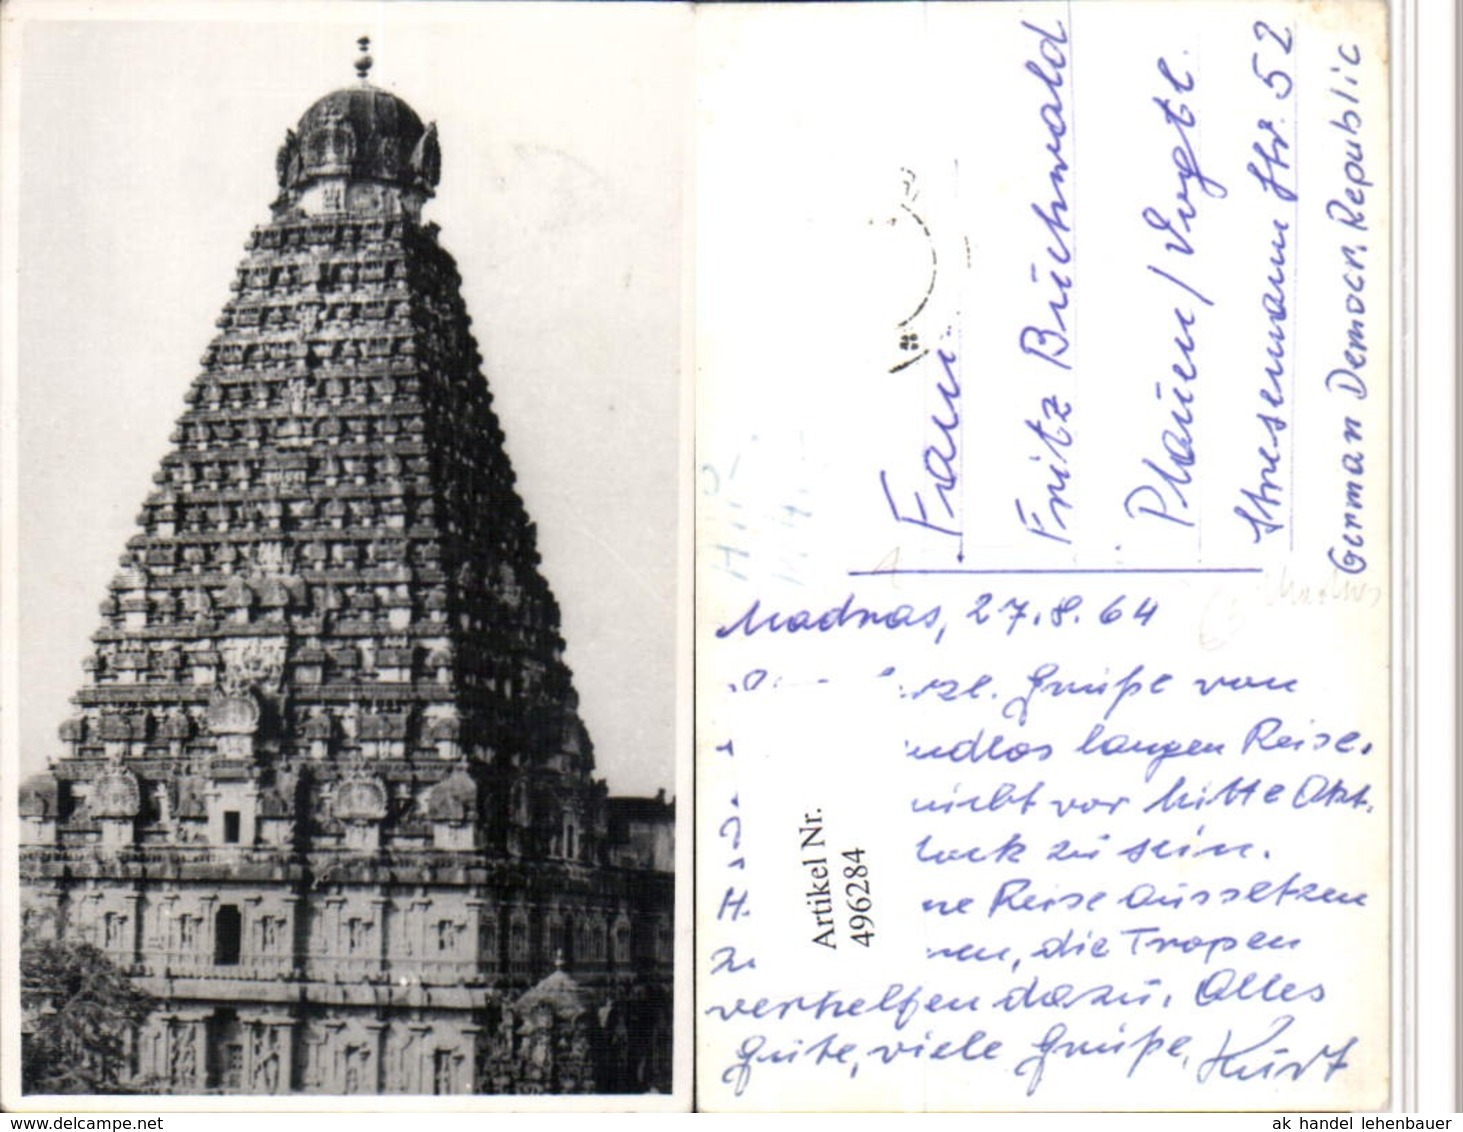 Frau
Fritz Buchwald
Plauen / Vogtl.
Stresemann Str. 52
German Democr. Republic
Madras, 27.8.64
Grüße von
endlos langen Reise.
nicht vor Mitte Okt.
zu sein.
Reise aussetzen
die Tropen
verhelfen dazu. Alles
Gute, viele Grüße, Kurt
Artikel Nr.
496284
ak handel lehenbauer
www.delcampe.net